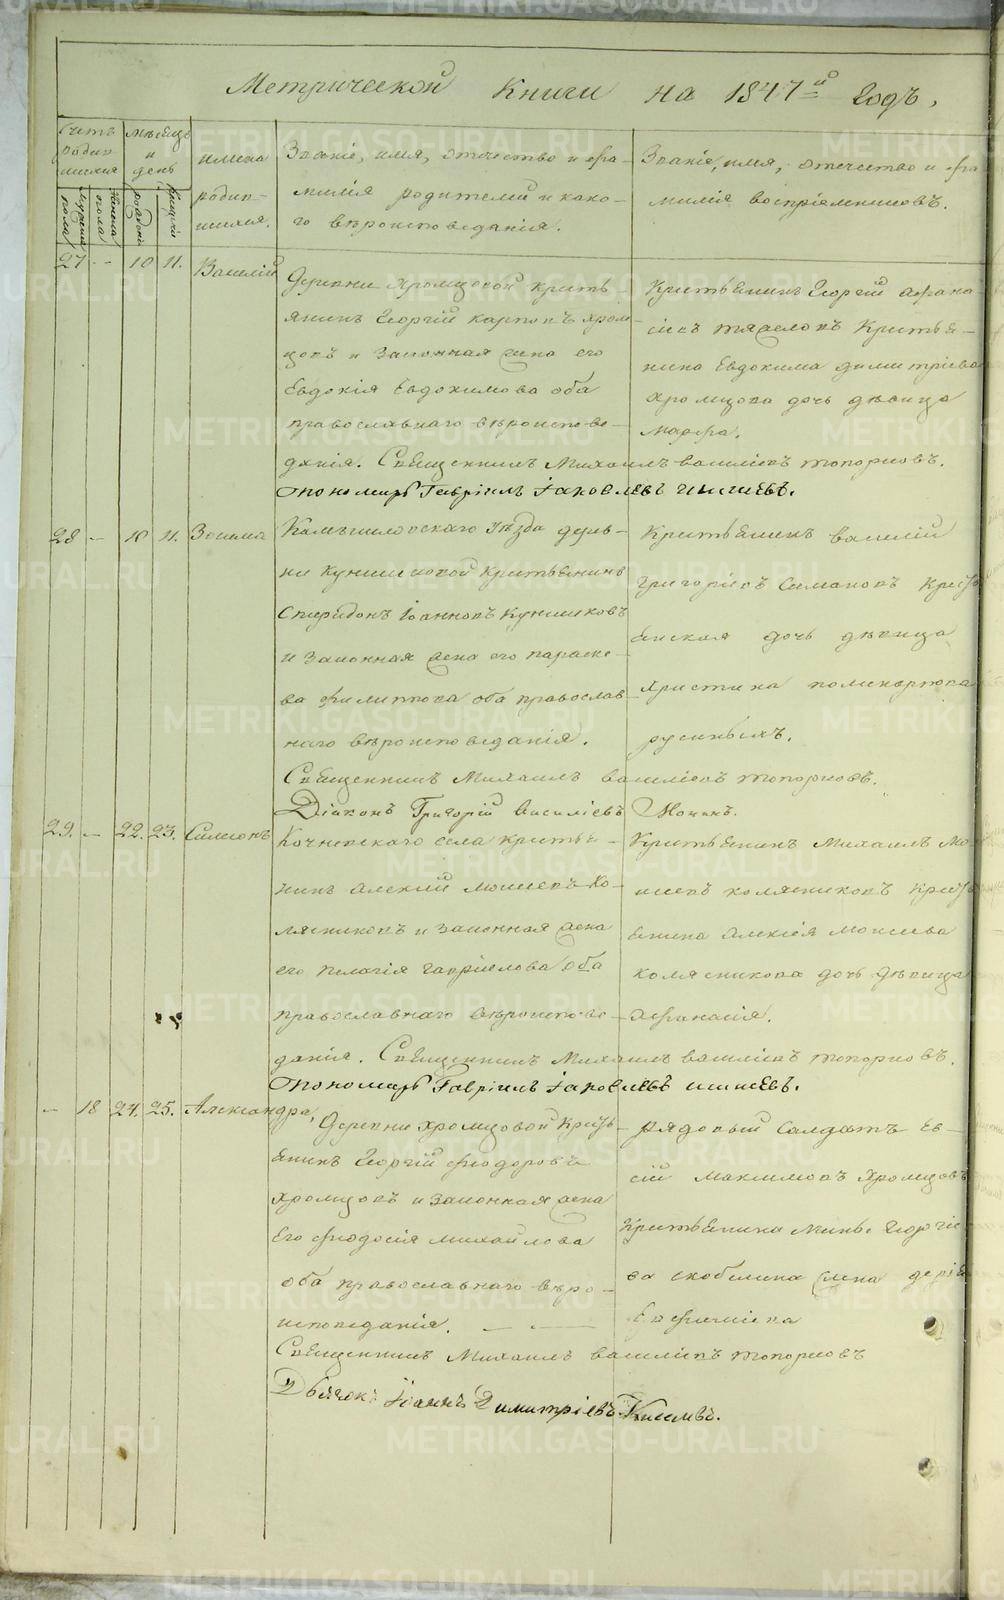 Метрической Книги на 1847й годъ,
Счетъ родившихся
Мужеска пола
Женска пола
Мѣсяцъ и день
рожденiя
крещенiя
имена родив-
шихся.
Званiе, имя, отчество и фа-
милiя родителей и како-
го вѣроисповѣданiя.
Званiе, имя, отчество и фа-
милiя воспрiемниковъ.
27 -- 10 11. Василiй
Деревни Хромцовой Кресть-
янинъ Георгiй Карповъ Хром-
цовъ и Законная жена его
Евдокiя Евдокимова оба
православнаго вѣроисповѣ-
данiя. Священникъ Михаилъ Василiевъ Топорковъ.
Пономарь Гаврiилъ Iаковлевъ
Крестьянинъ Георгiй Афана-
сiевъ Крестья-
нина Евдокима Димитрiева
Хромцова дочь дѣвица
Марфа.
28 -- 10 11. Зосима
Камышловскаго Уѣзда дерев-
ни Куншиковой Крестьянинъ
Спиридонъ Iоанновъ Куншиковъ
и Законная жена его Параске-
ва Филиппова оба православ-
наго вѣроисповѣданiя.
Священникъ Михаилъ Василiевъ Топорковъ.
Дiаконъ Григорiй Василiевъ
Крестьянинъ Василiй
Григорiевъ Симановъ Кресть-
янская дочь дѣвица
Христина Поликарпова
29. -- 22. 23. Симеонъ
Кочневскаго села Крестья-
нинъ Алексiй Моисеевъ Ко-
лясниковъ и Законная жена
его Пелагiя Гаврiилова оба
православнаго вѣроисповѣ-
данiя. Священникъ Михаилъ Василiевъ Топорковъ.
Пономарь Гаврiилъ Iаковлевъ
Крестьянинъ Михаилъ Мо-
исеевъ Колясниковъ Кресть-
янина Алексiя Моисеева
Колясникова дочь дѣвица
Афанасiя.
-- 18 24. 25. Александра,
Деревни Хромцовой Кресть-
янинъ Георгiй Феодоровъ
Хромцовъ и Законная жена
Его Феодосiя Михайлова
оба православнаго вѣро-
исповѣданiя.
Священникъ Михаилъ Василiевъ Топорковъ
Дьячокъ Iоаннъ Димитрiевъ Киселевъ.
Рядовый Салдатъ Ев-
сiй Максимовъ Хромцовъ
Крестьянина Георгiе-
ва Скобелина жена